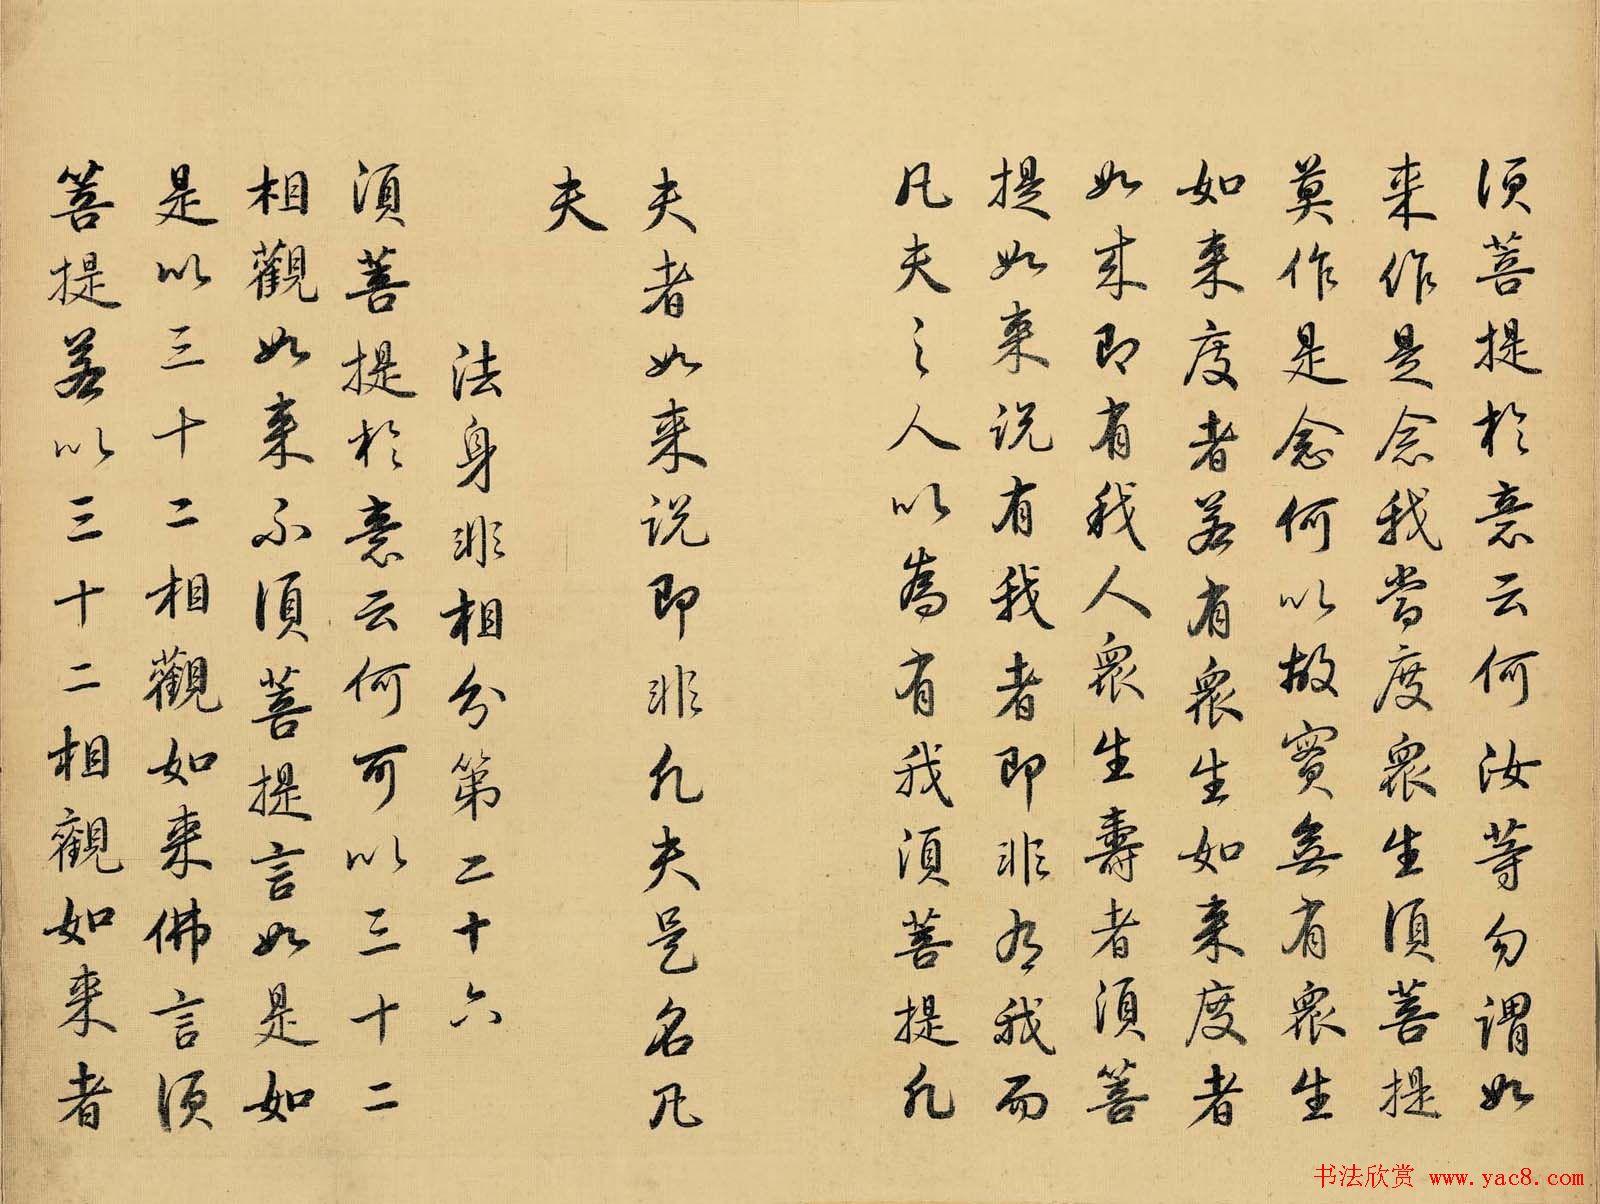 須菩提於意云何汝等勿謂如
来作是念我當度衆生須菩提
莫作是念何以故實無有衆生
如来度者若有衆生如来度者
如来即有我人衆生壽者須菩
提如来說有我者即非有我而
凡夫之人以為有我須菩提凡
夫者如来說即非凡夫是名凡
夫
法身非相分第二十六
須菩提於意云何可以三十二
相觀如来不須菩提言如是如
是以三十二相觀如来佛言須
菩提若以三十二相觀如来者
书法欣赏 www.yac8.com